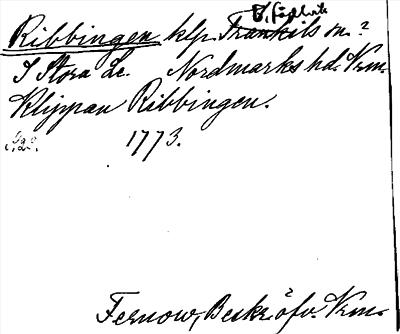 Ribbingen klp. Trankils sn.?
I Stora Le. Nordmarks hd. Vrm.
Klippan Ribbingen.
1773.
Fernow, Beskr. öfv. Vrm.